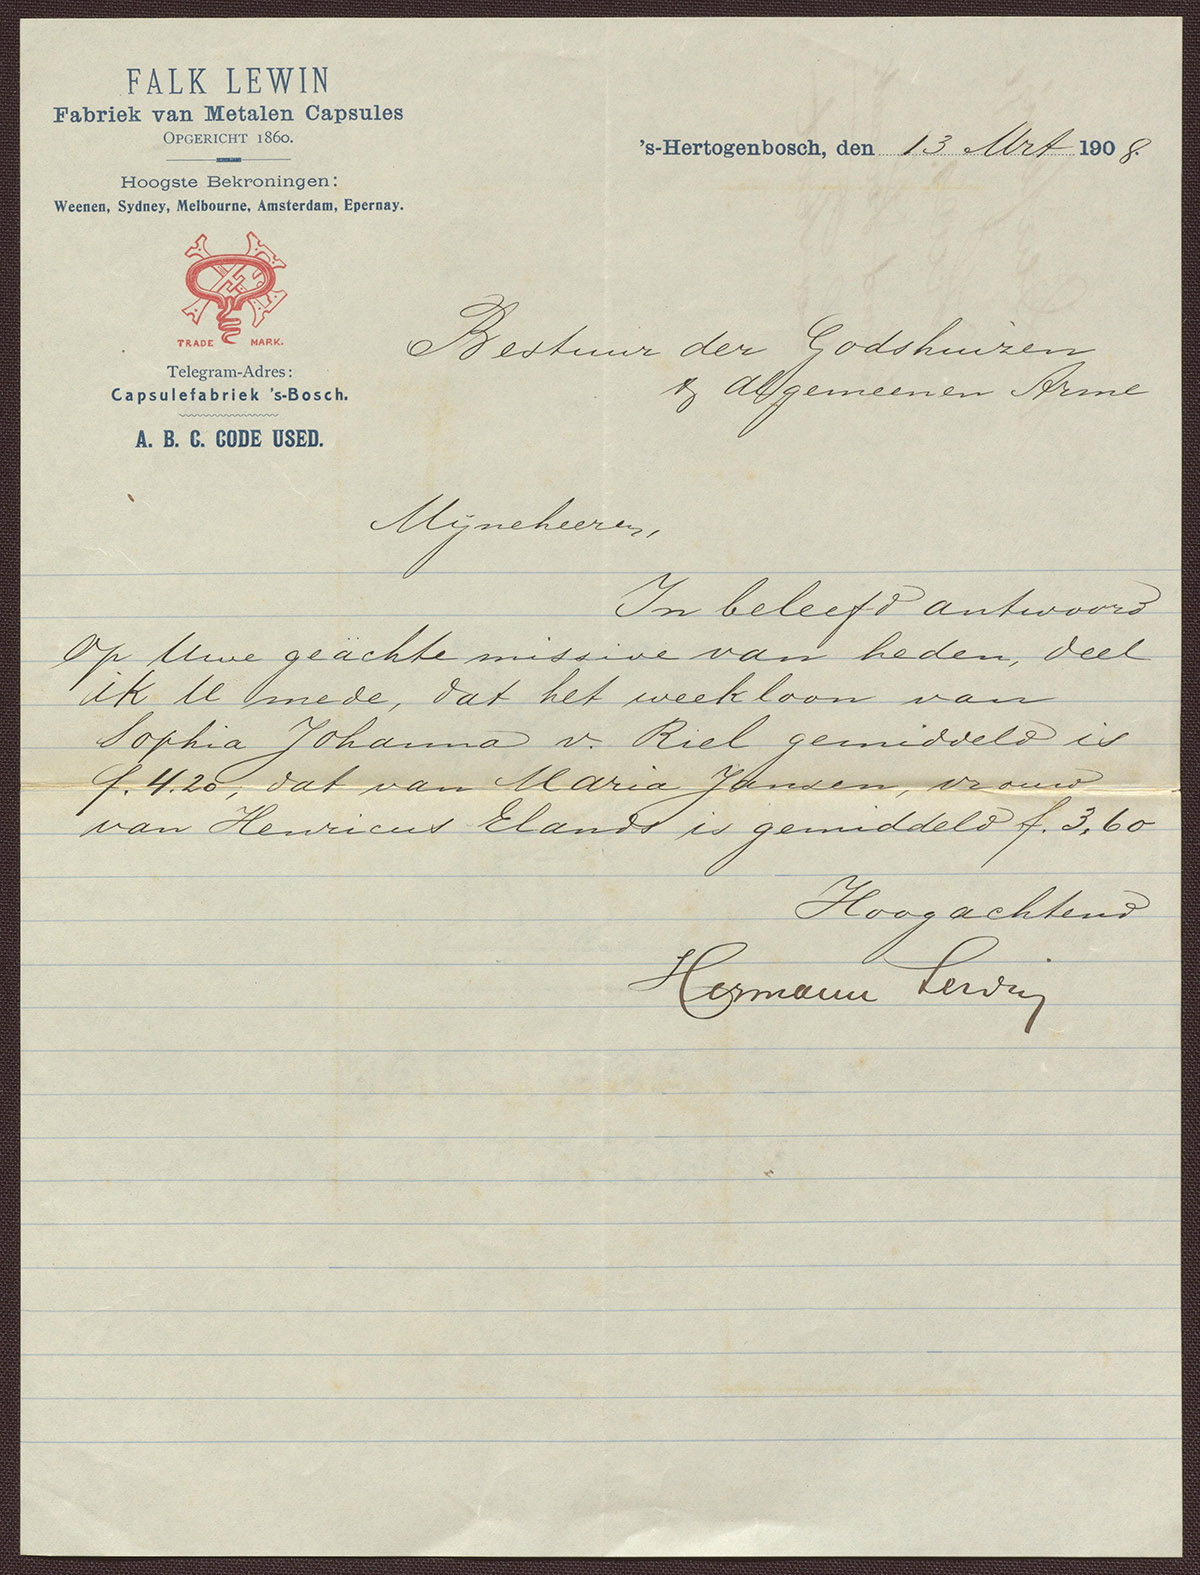 FALK LEWIN
Fabriek van Metalen Capsules
OPGERICHT 1860.
Hoogste Bekroningen:
Weenen, Sydney, Melbourne, Amsterdam, Epernay.
TRADE MARK.
Telegram-Adres:
Capsulefabriek 's-Bosch.
A. B. C. CODE USED.
's-Hertogenbosch, den 13 Mrt 1908.
Bestuur der Godshuizen
& Algemeenen Arme
Mijneheeren,
In beleefd antwoord
op Uwe geächte missive van heden, deel
ik U mede, dat het weekloon van
Sophia Johanna v. Riel gemiddeld is
f. 4.20, dat van Maria Jansen, vrouw
van Henricus Elands is gemiddeld f. 3,60
Hoogachtend
Hermann Lewin